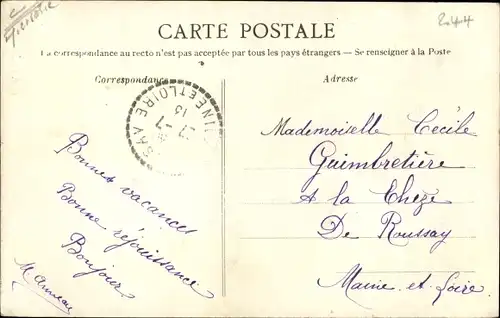 CARTE POSTALE
La correspondance au recto n'est pas acceptée par tous les pays étrangers — Se renseigner à la Poste
Correspondance
Adresse
Bonnes vacances
Bonne réjouissance
Bonjour
Mademoiselle Cécile
Guimbretière
A la Cheze
De Roussay
Maine et Loire
INE ET LOIRE